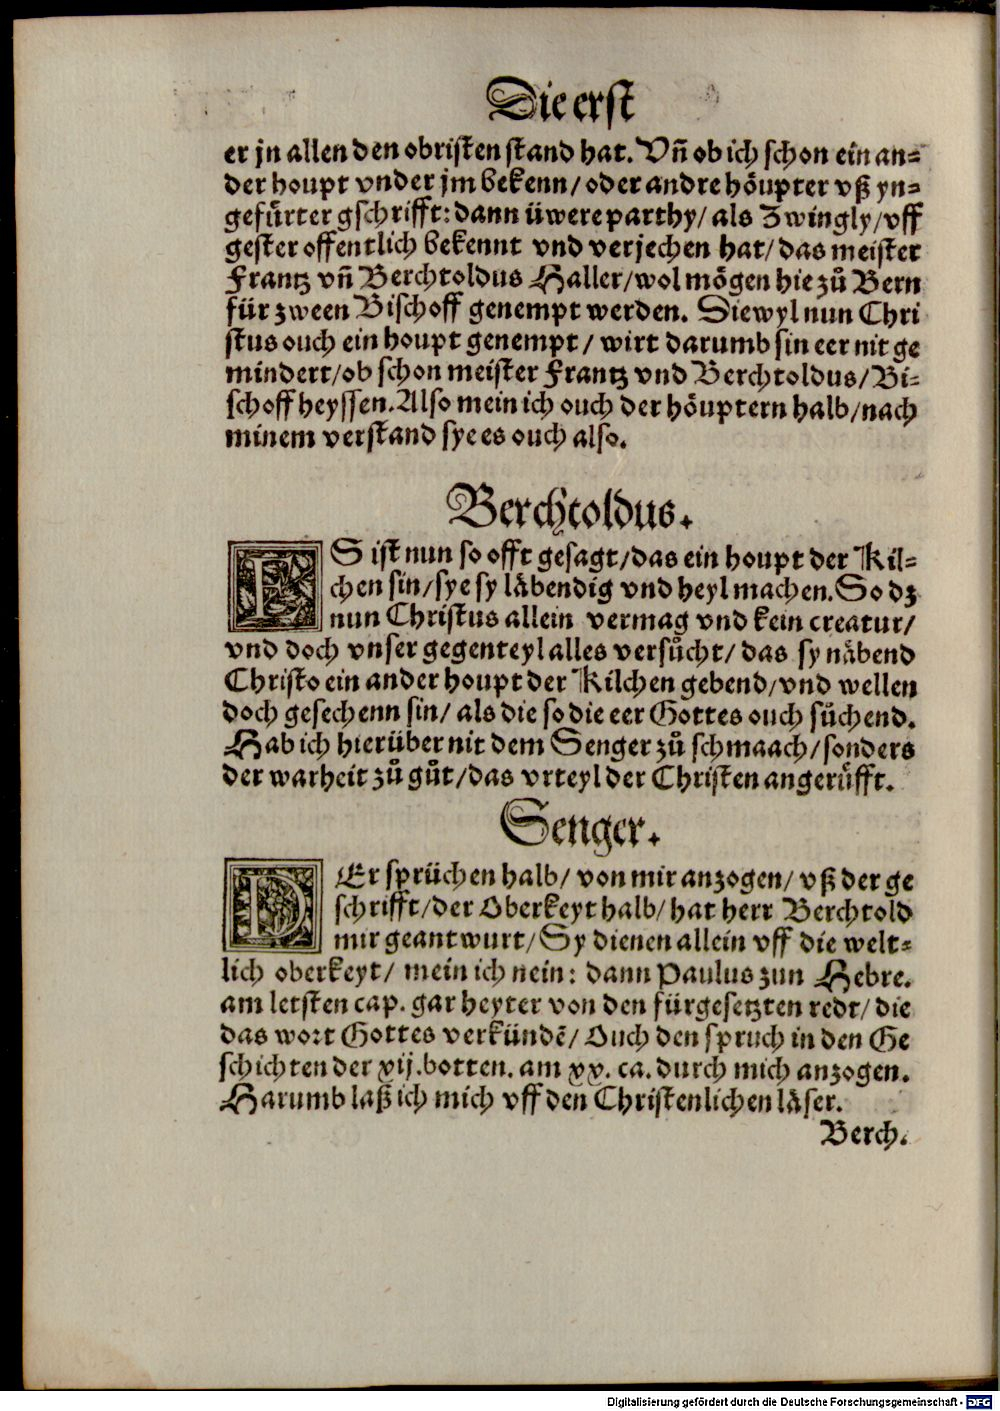 Die erst
er jn allen den obristen stand hat. Vñ ob ich schon ein an⸗
der houpt vnder jm bekenn/ oder andre höupter vß yn⸗
gefůrter gschrifft: dann üwere parthy/ als Zwingly/ vff
gester offentlich bekennt vnd verjechen hat/ das meister
Frantz vñ Berchtoldus Haller/ wol mögen hie zů Bern
für zween Bischoff genempt werden. Diewyl nun Chri
stus ouch ein houpt genempt/ wirt darumb sin eer nit ge
mindert/ ob schon meister Frantz vnd Berchtoldus/ Bi⸗
schoff heyssen. Also mein ich ouch der höuptern halb/ nach
minem verstand sye es ouch also.
Berchtoldus.
ES ist nun so offt gesagt/ das ein houpt der Kil⸗
chen sin/ sye sy läbendig vnd heyl machen. So dz
nun Christus allein vermag vnd kein creatur/
vnd doch vnser gegenteyl alles versůcht/ das sy näbend
Christo ein ander houpt der Kilchen gebend/ vnd wellen
doch gesechenn sin/ als die so die eer Gottes ouch sůchend.
Hab ich hierüber nit dem Senger zů schmaach/ sonders
der warheit zů gůt/ das vrteyl der Christen angerüfft.
Senger.
DEr sprüchen halb/ von mir anzogen/ vß der ge
schrifft/ der Oberkeyt halb/ hat herr Berchtold
mir geantwurt/ Sy dienen allein vff die welt⸗
lich oberkeyt/ mein ich nein: dann Paulus zun Hebre.
am letsten cap. gar heyter von den fürgesetzten redt/ die
das wort Gottes verkündē/ Ouch den spruch in den Ge
schichten der xij. botten. am xx. ca. durch mich anzogen.
Harumb laß ich mich vff den Christenlichen läser.
Berch.
Digitalisierung gefördert durch die Deutsche Forschungsgemeinschaft - DFG